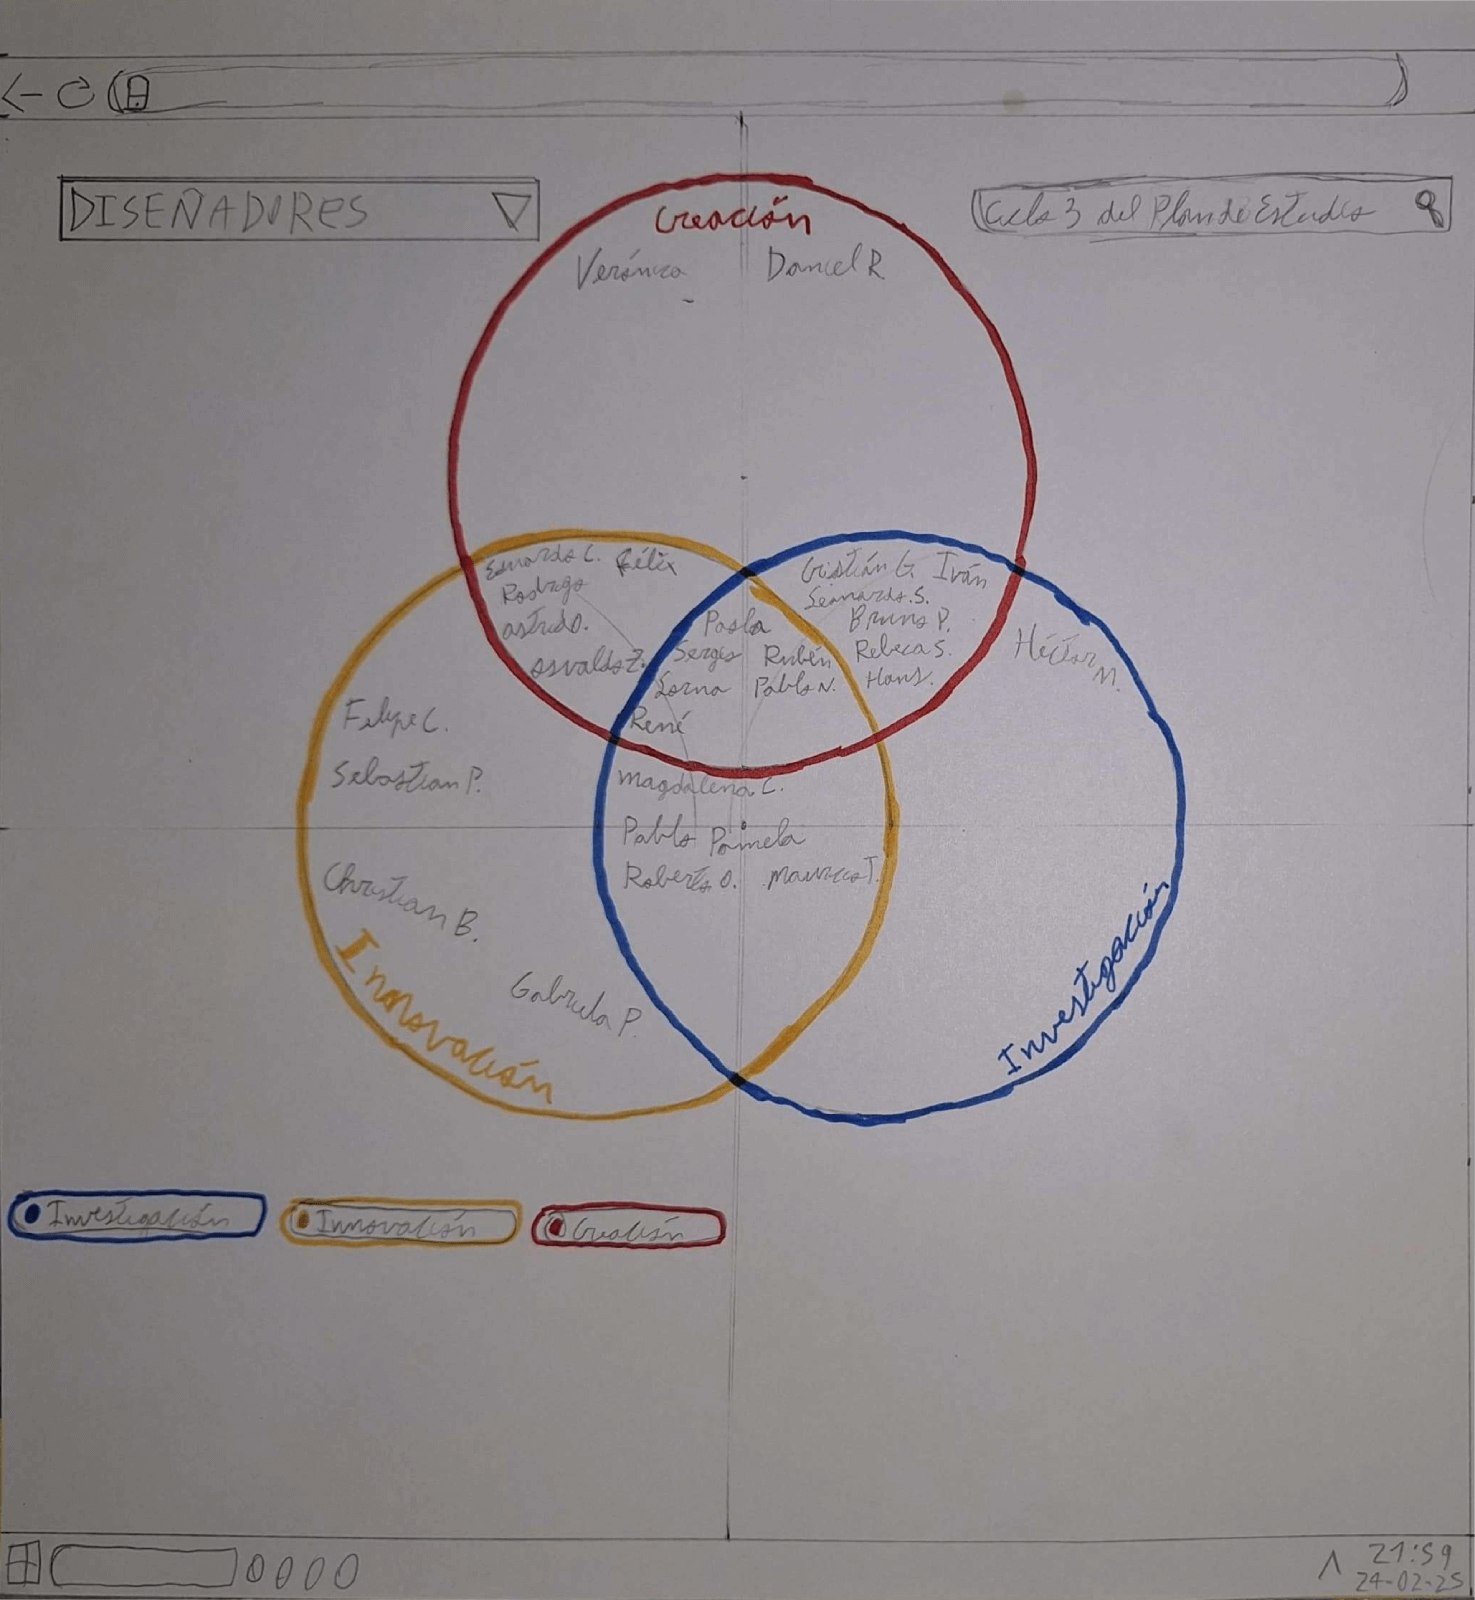 DISEÑADORES
Ciclo 3 del Plan de Estudio
Creación
Verónica
Daniel R
Eduardo C. Félix
Rodrigo
Astrid O.
Osvaldo Z.
Cristián G. Iván
Leonardo S.
Bruno P.
Rebeca S.
Hans.
Paola
Sergio Rubén
Lorna Pablo N.
René
Héctor M.
Felipe C.
Sebastian P.
Magdalena C.
Pablo Pamela
Roberto O. Mauricio T.
Christian B.
Gabriela P.
Innovación
Investigación
Investigación
Innovación
Creación
21:59
24-02-25